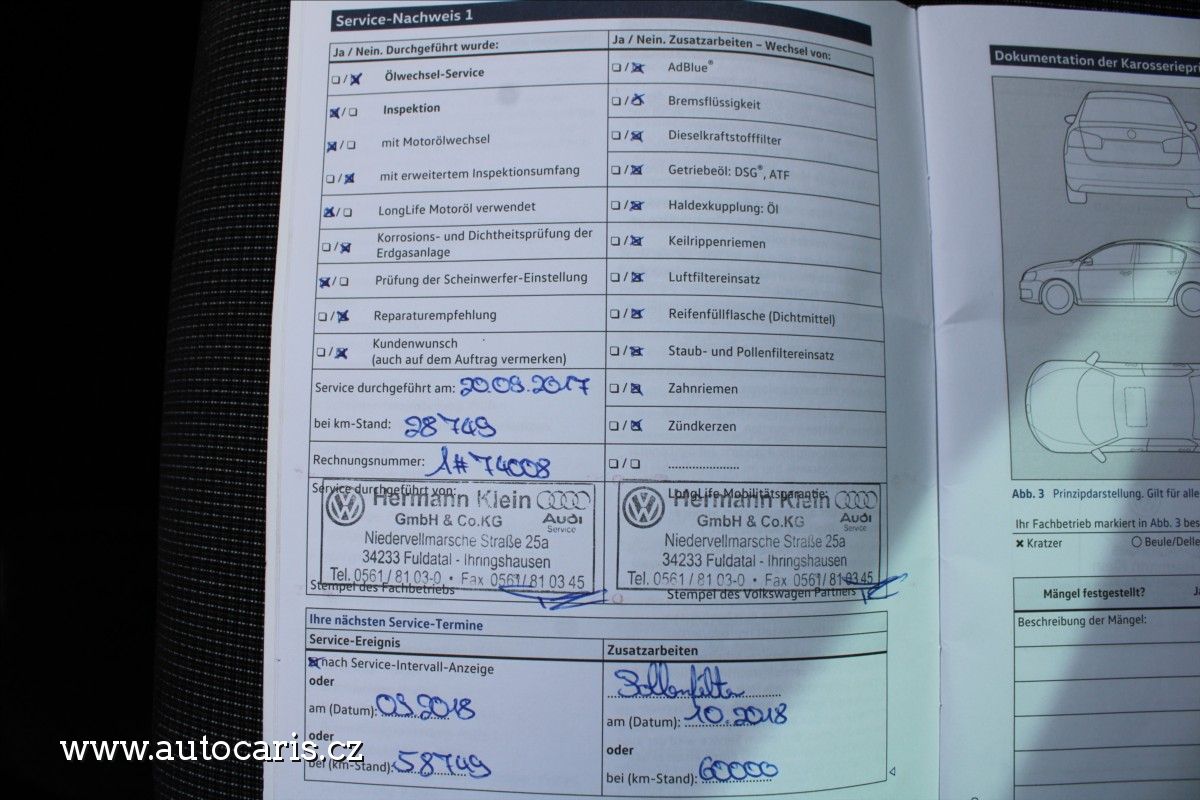 Service-Nachweis 1
Ja / Nein. Durchgeführt wurde:
Ölwechsel-Service
Inspektion
mit Motorölwechsel
mit erweitertem Inspektionsumfang
LongLife Motoröl verwendet
Korrosions- und Dichtheitsprüfung der
Erdgasanlage
Prüfung der Scheinwerfer-Einstellung
Reparaturempfehlung
Kundenwunsch
(auch auf dem Auftrag vermerken)
Service durchgeführt am: 20.09.2017
bei km-Stand: 28749
Rechnungsnummer: 1#74008
Service durchgeführt von:
Hermann Klein
GmbH & Co.KG
Audi
Service
Niedervellmarsche Straße 25a
34233 Fuldatal - Ihringshausen
Tel. 0561/ 81 03-0 • Fax 0561/ 81 03 45
Stempel des Fachbetriebs
Ja / Nein. Zusatzarbeiten – Wechsel von:
AdBlue®
Bremsflüssigkeit
Dieselkraftstofffilter
Getriebeöl: DSG®, ATF
Haldexkupplung: Öl
Keilrippenriemen
Luftfiltereinsatz
Reifenfüllflasche (Dichtmittel)
Staub- und Pollenfiltereinsatz
Zahnriemen
Zündkerzen
LongLife Mobilitätsgarantie:
Hermann Klein
GmbH & Co.KG
Audi
Service
Niedervellmarsche Straße 25a
34233 Fuldatal - Ihringshausen
Tel. 0561/ 81 03-0 • Fax 0561/ 81 03 45
Stempel des Volkswagen Partners
Ihre nächsten Service-Termine
Service-Ereignis
nach Service-Intervall-Anzeige
oder
am (Datum): 09.2018
oder
bei (km-Stand): 58749
Zusatzarbeiten
Pollenfilter
am (Datum): 10.2018
oder
bei (km-Stand): 60000
Dokumentation der Karosseriepr
Abb. 3 Prinzipdarstellung. Gilt für alle
Ihr Fachbetrieb markiert in Abb. 3 bes
Kratzer
Beule/Delle
Mängel festgestellt?
Beschreibung der Mängel:
www.autocaris.cz